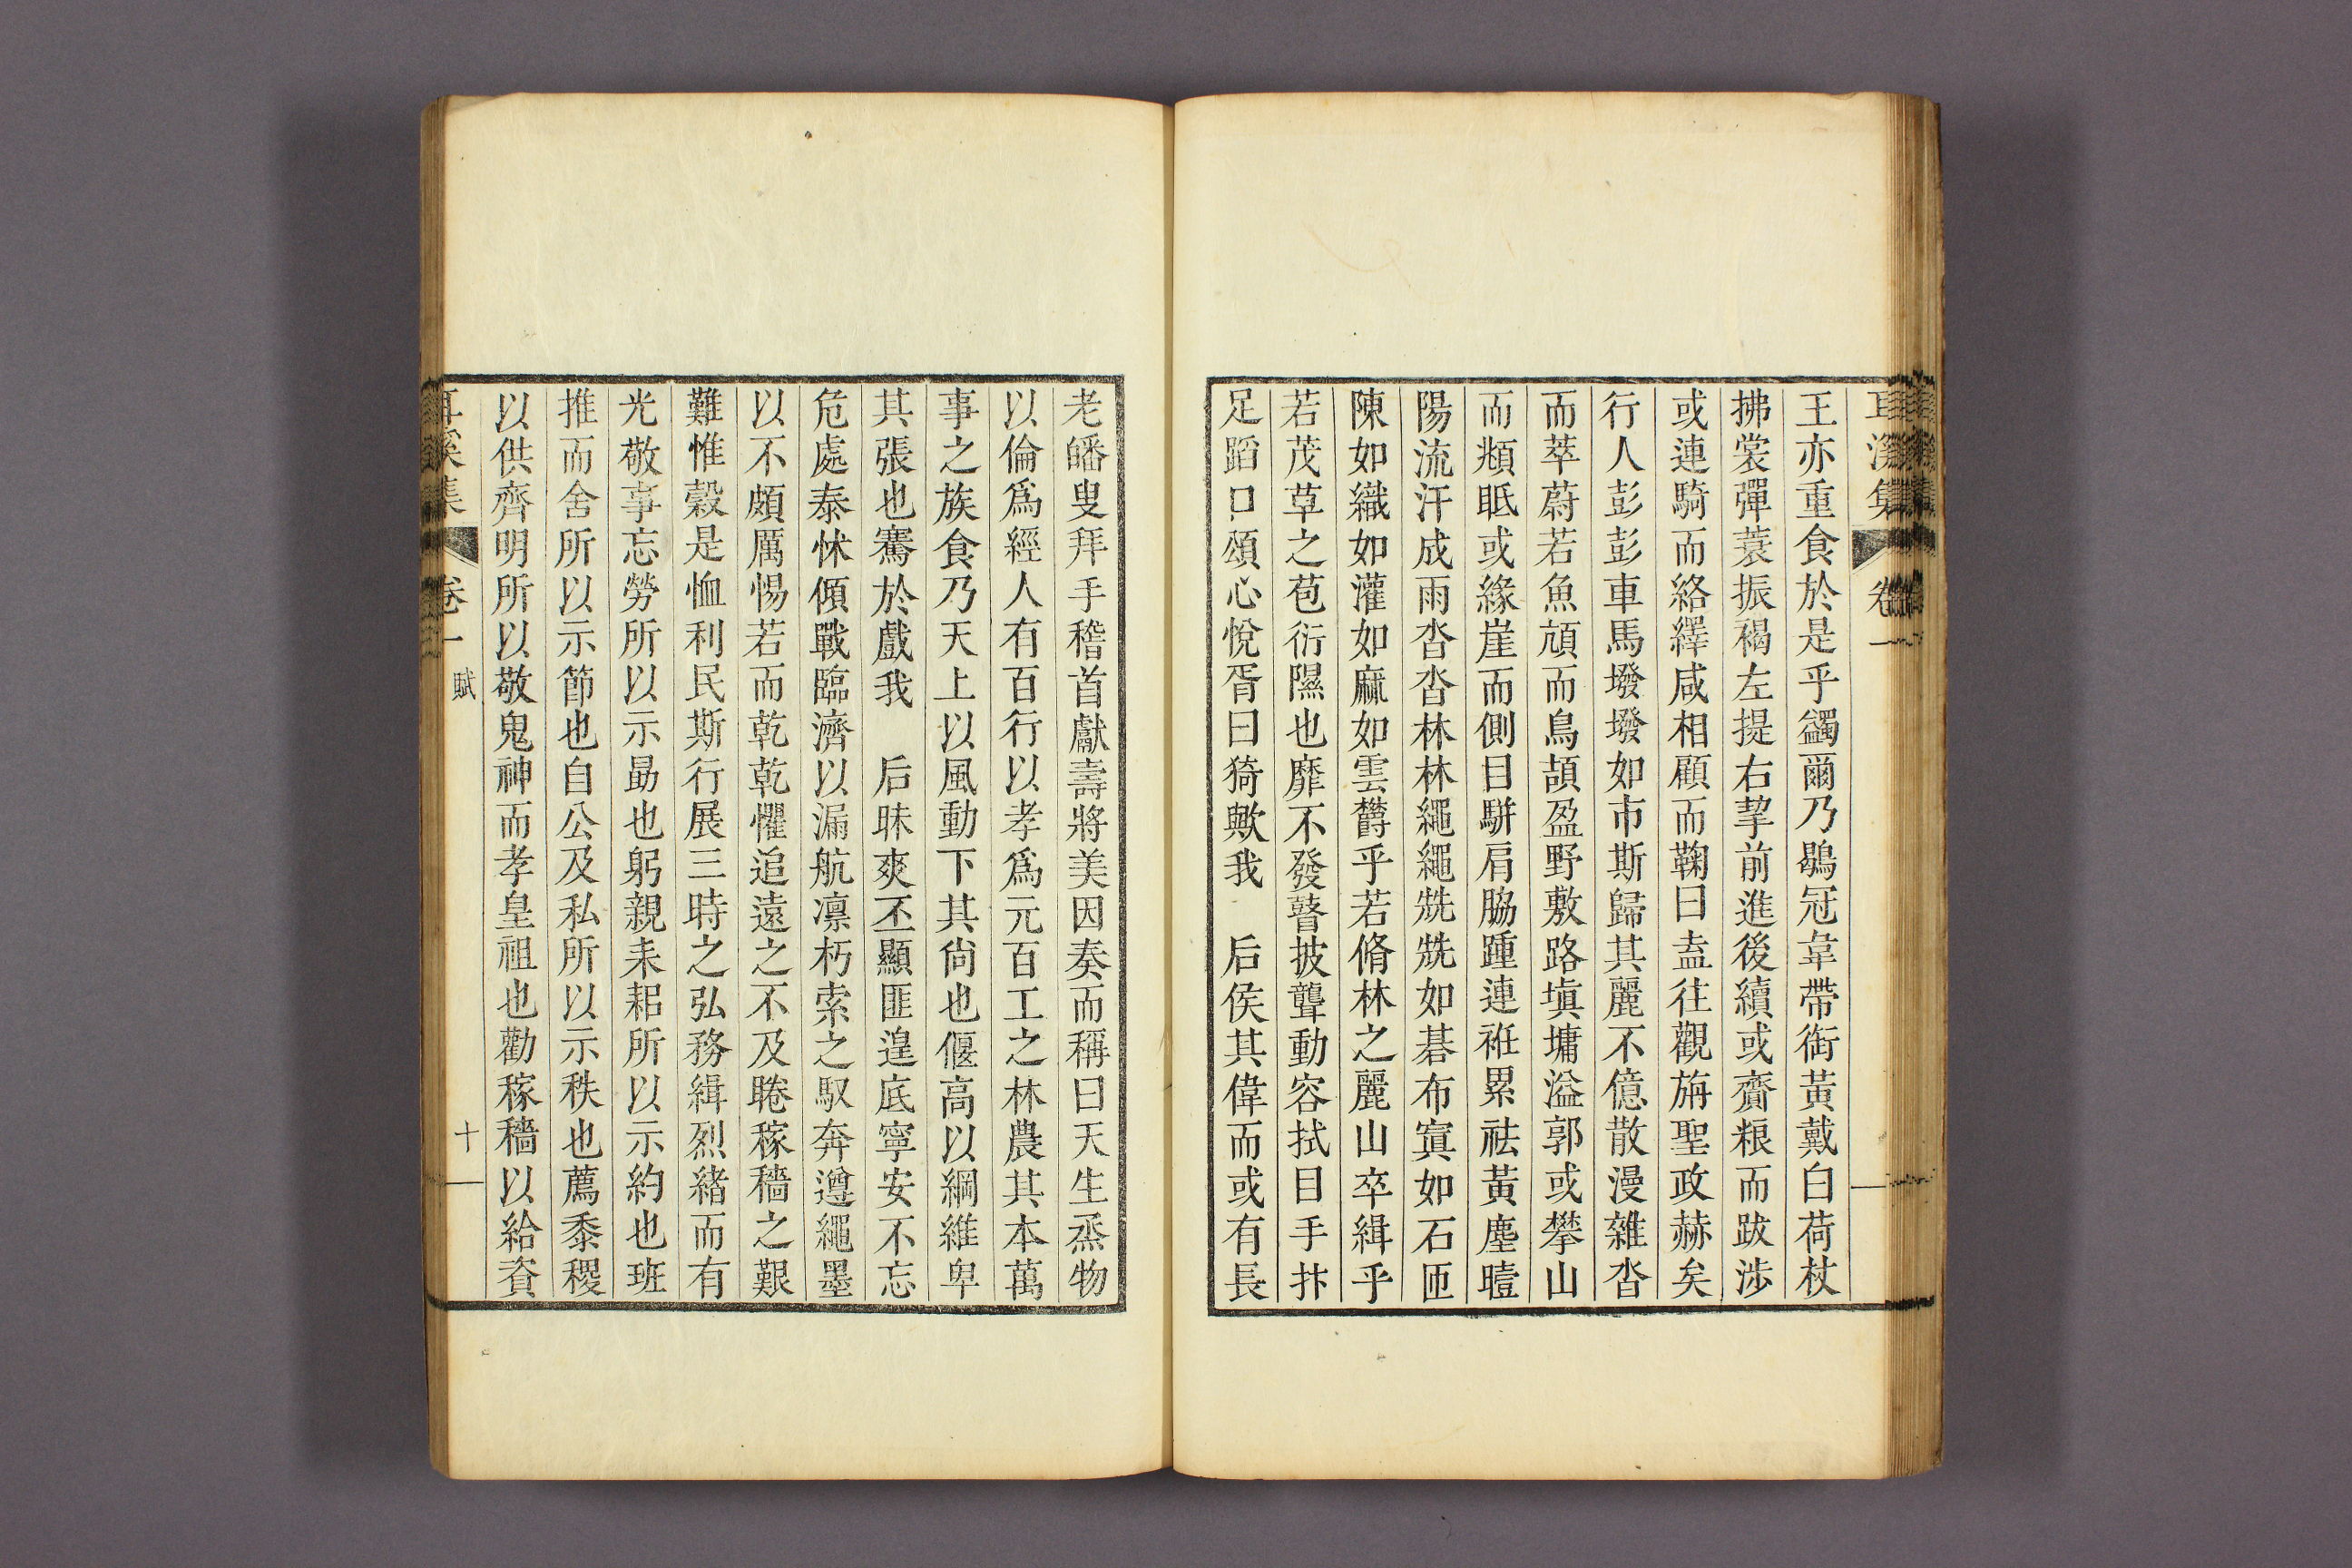 耳溪集 卷一
王亦重食於是乎蠲爾乃鶡冠韋帶衘黃戴白荷杖
拂裳彈蓑振褐左提右挈前進後續或齎粮而跋涉
或連騎而絡繹咸相顧而鞠曰盍往觀旃聖政赫矣
行人彭彭車馬墢墢如市斯歸其麗不億散漫雜沓
而萃蔚若魚頏而鳥頡盈野敷路塡墉溢郭或攀山
而頫眂或緣崖而側目騈肩脇踵連袵累祛黃塵曀
陽流汗成雨沓沓林林繩繩兟兟如碁布寘如石匝
陳如織如灌如麻如雲欝乎若脩林之麗山卒緝乎
若茂草之苞衍隰也靡不發瞽披聾動容拭目手抃
足蹈口頌心悅胥曰猗歟我 后侯其偉而或有長
老皤叟拜手稽首獻壽將美因奏而稱曰天生烝物
以倫爲經人有百行以孝爲元百工之林農其本萬
事之族食乃天上以風動下其尙也偃高以綱維卑
其張也騫於戲我 后昧爽丕顯匪遑底寧安不忘
危處泰怵傾戰臨濟以漏航凛朽索之馭奔遵繩墨
以不頗厲惕若而乾乾懼追遠之不及睠稼穡之艱
難惟穀是恤利民斯行展三時之弘務緝烈緖而有
光敬事忘勞所以示勗也躬親耒耜所以示約也班
推而舍所以示節也自公及私所以示秩也薦黍稷
以供齊明所以敬鬼神而孝皇祖也勸稼穡以給資
耳溪集 卷一 賦 十